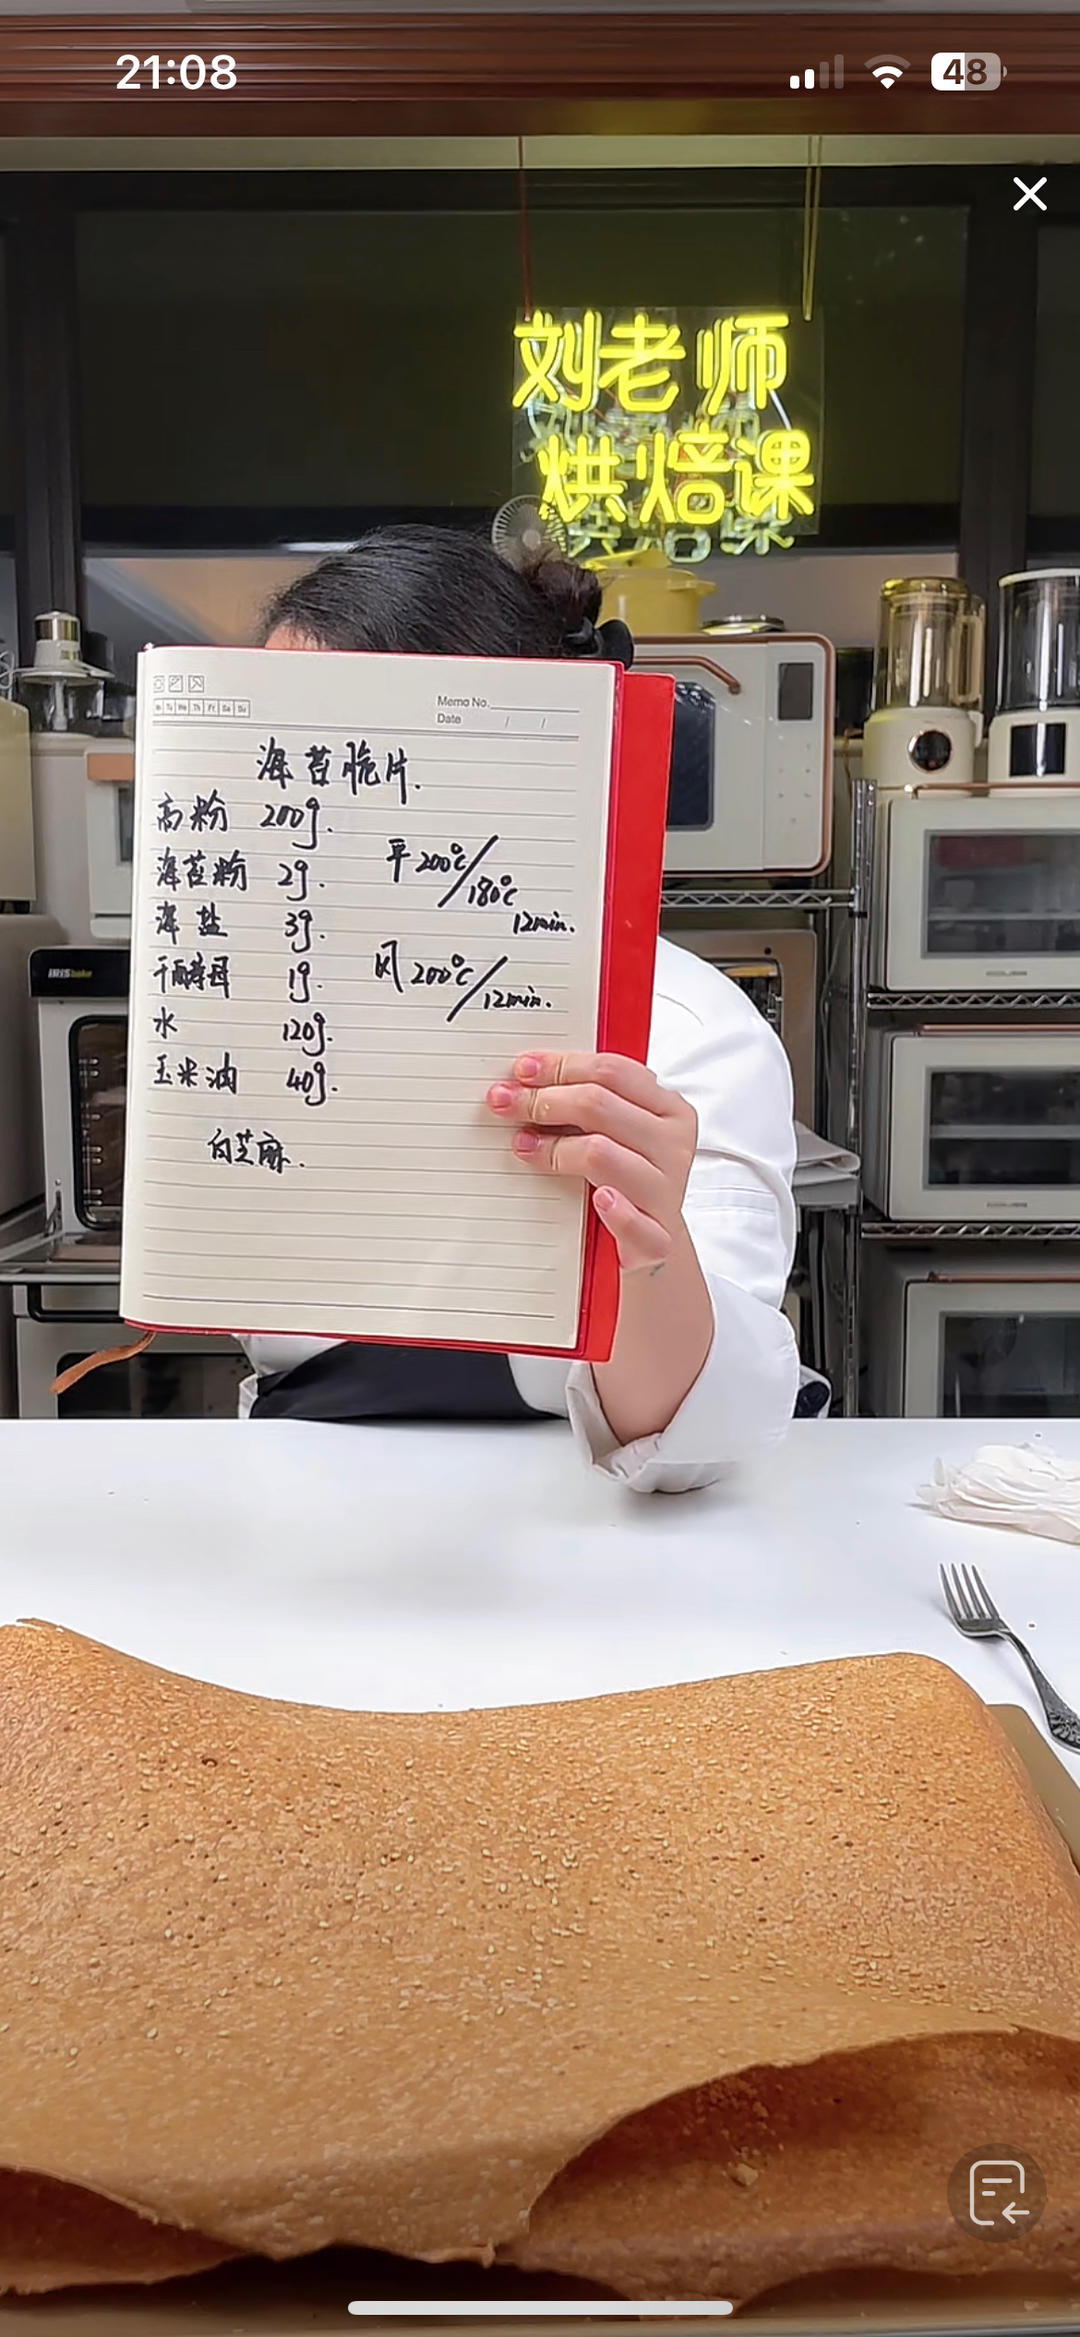 21:08
48
刘老师
烘焙课
Mo Tu We Th Fr Sa Su
Memo No.
Date / /
海苔脆片.
高粉 200g.
海苔粉 2g.
海盐 3g.
干酵母 1g.
水 120g.
玉米油 40g.
白芝麻.
平200℃/180℃
12min.
风200℃/12min.
IRIS bake